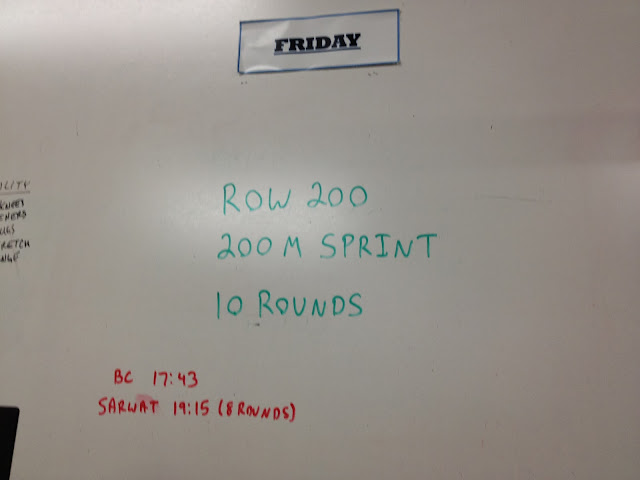 FRIDAY
ROW 200
200 M SPRINT
10 ROUNDS
BC 17:43
SARWAT 19:15 (8 ROUNDS)